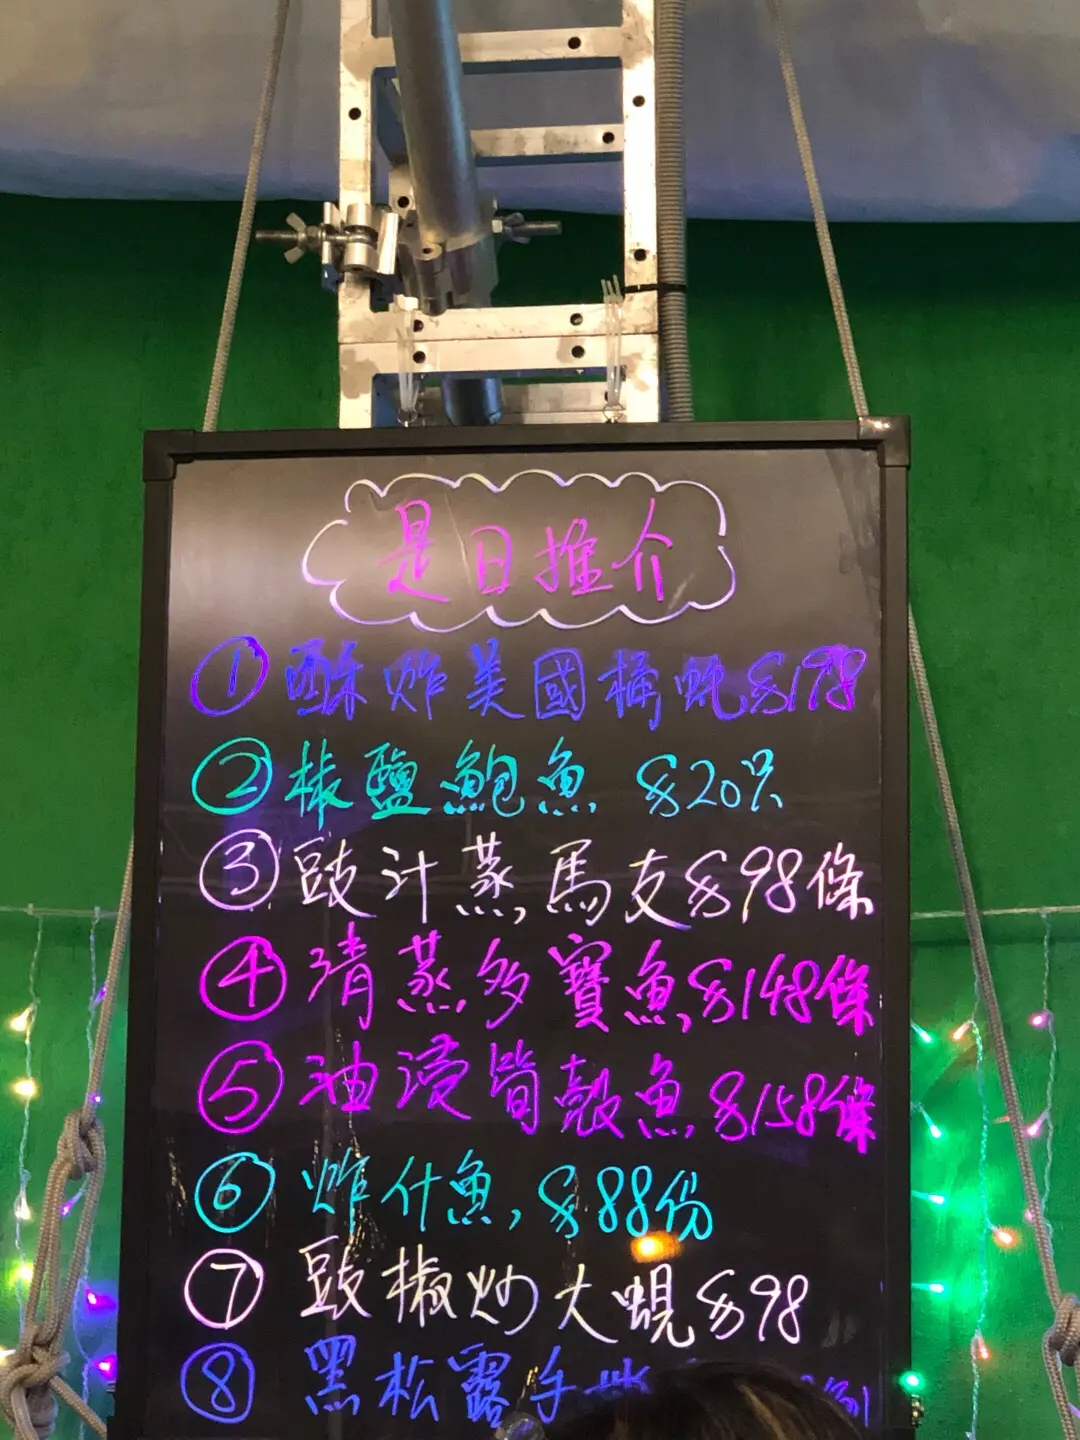 是日推介
① 酥炸美國桶蚝 $198
② 椒鹽鮑魚 $20只
③ 豉汁蒸馬友 $98條
④ 清蒸多寶魚, $148條
⑤ 油浸筍殼魚 $158條
⑥ 炸什魚, $88份
⑦ 豉椒炒大蜆 $98
⑧ 黑松露手